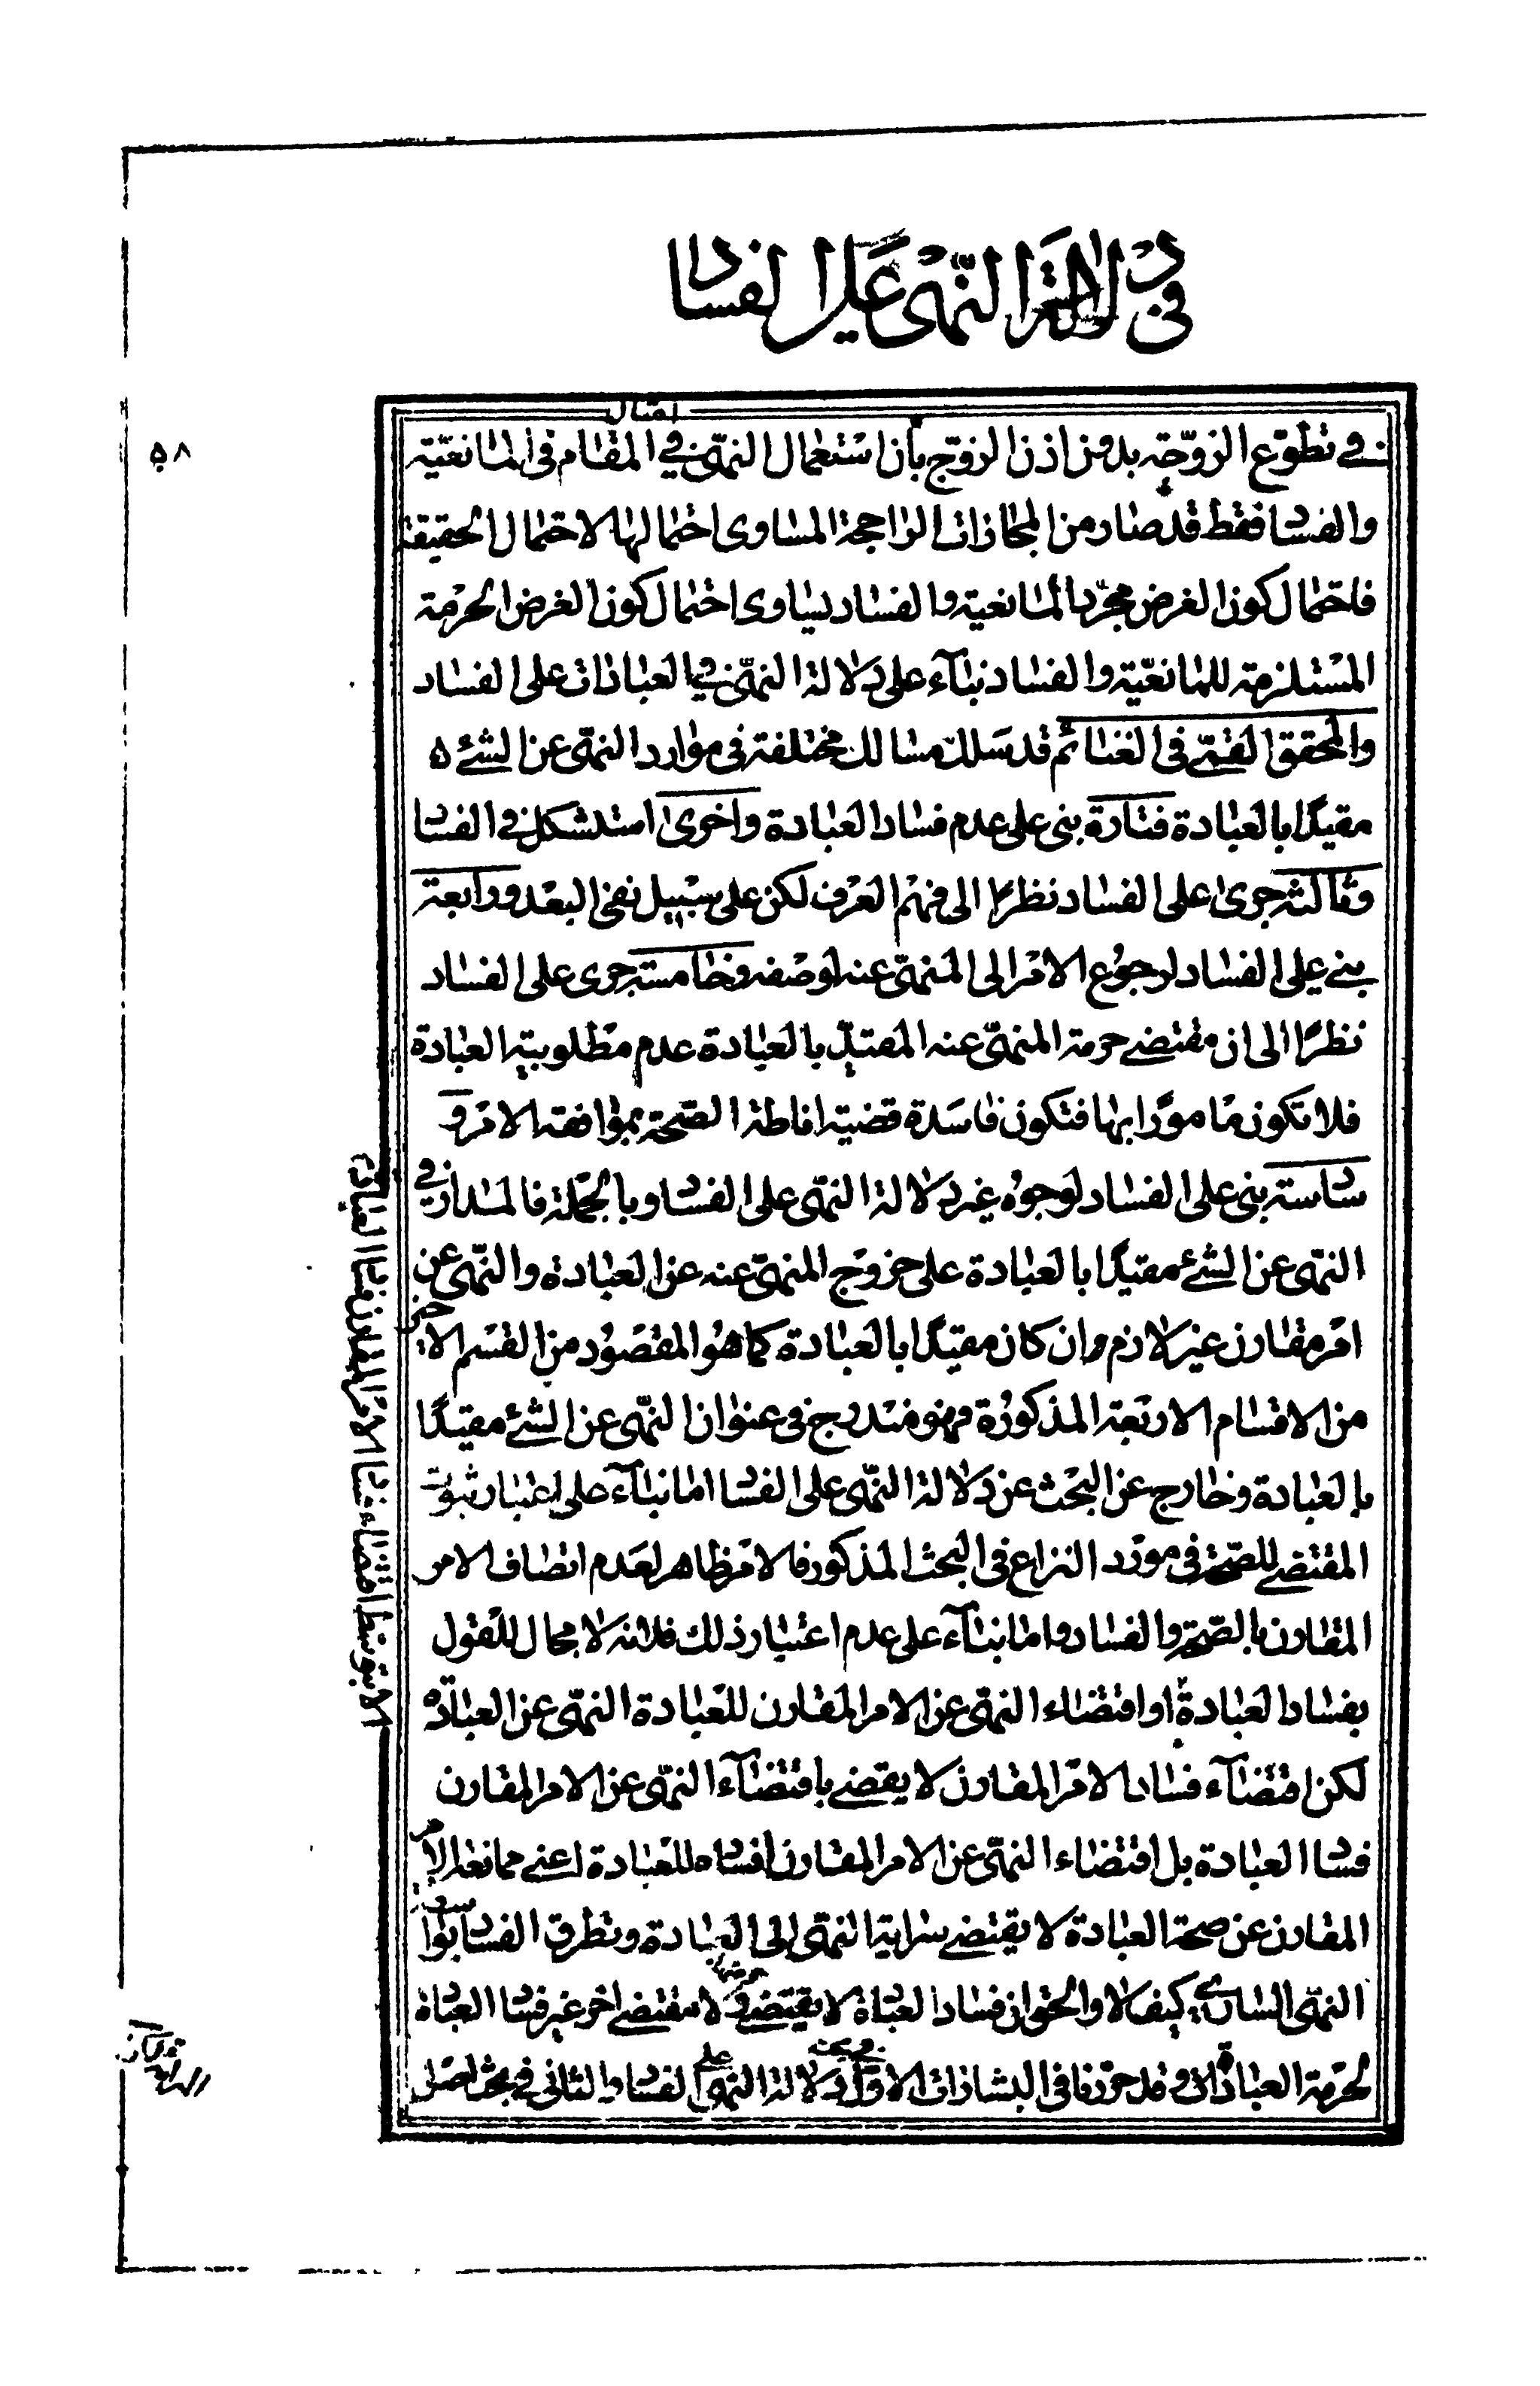 في دلالة النهي على الفساد
٥٨
امثال
في تطوع الزوجة بدون اذن الزوج بأن استعمال النهي في المقام في المانعية
والفساد فقط قد صار من المجازات الراجحة المساوى احتمالها لاحتمال الحقيقة
فاحتمال كون الغرض مجرد المانعية والفساد يساوى احتمال كون الغرض الحرمة
المستلزمة للمانعية والفساد بناء على دلالة النهي في العبادات على الفساد
والمحقق القمي في الغنائم قد سلك مسالك مختلفة في موارد النهي عن الشئ
مقيدًا بالعبادة فتارة بنى على عدم فساد العبادة واخرى استشكل في الفساد
وثالثة جرى على الفساد نظرًا الى فهم العرف لكن على سبيل نفي البعد ورابعة
بنى على الفساد لرجوع الامر الى المنهي عنه لوصفه وخامسة جرى على الفساد
نظرًا الى ان مقتضى حرمة المنهي عنه المقيد بالعبادة عدم مطلوبية العبادة
فلا تكون مامورًا بها فتكون فاسدة قضية اناطة الصحة بموافقة الامر و
سادسة بنى على الفساد لوجوه غير دلالة النهي على الفساد وبالجملة فالمدار في
النهي عن الشئ مقيدًا بالعبادة على خروج المنهي عنه عن العبادة والنهي عن
امر مقارن غير لازم وان كان مقيدًا بالعبادة كما هو المقصود من القسم الاخير
من الاقسام الاربعة المذكورة فهو مندرج في عنوان النهي عن الشئ مقيدًا
بالعبادة وخارج عن البحث عن دلالة النهي على الفساد اما بناء على اعتبار ثبوت
المقتضى للصحة في مورد النزاع في البحث المذكور فالامر ظاهر لعدم اتصاف الامر
المقارن بالصحة والفساد واما بناء على عدم اعتبار ذلك فلانه لا مجال للقول
بفساد العبادة او اقتضاء النهي عن الامر المقارن للعبادة النهي عن العبادة
لكن اقتضاء فساد الامر المقارن لا يقضى باقتضاء النهي عن الامر المقارن
فساد العبادة بل اقتضاء النهي عن الامر المقارن افساده للعبادة اعنى ممانعة الامر
المقارن عن صحة العبادة لا يقتضى سراية النهي الى العبادة وتطرق الفساد بواسطة
النهي السارى كيف لا والحق ان فساد العبادة لا يقتضى حرمتها ولا مقتضى اخر غير فساد العبادة
لحرمة العبادة وقد حررنا في البشارات الاول في بحث دلالة النهي على الفساد والثاني في بحث اصل
لا يتوسط اقتضاء فساد الامر المقارن فساد العبادة